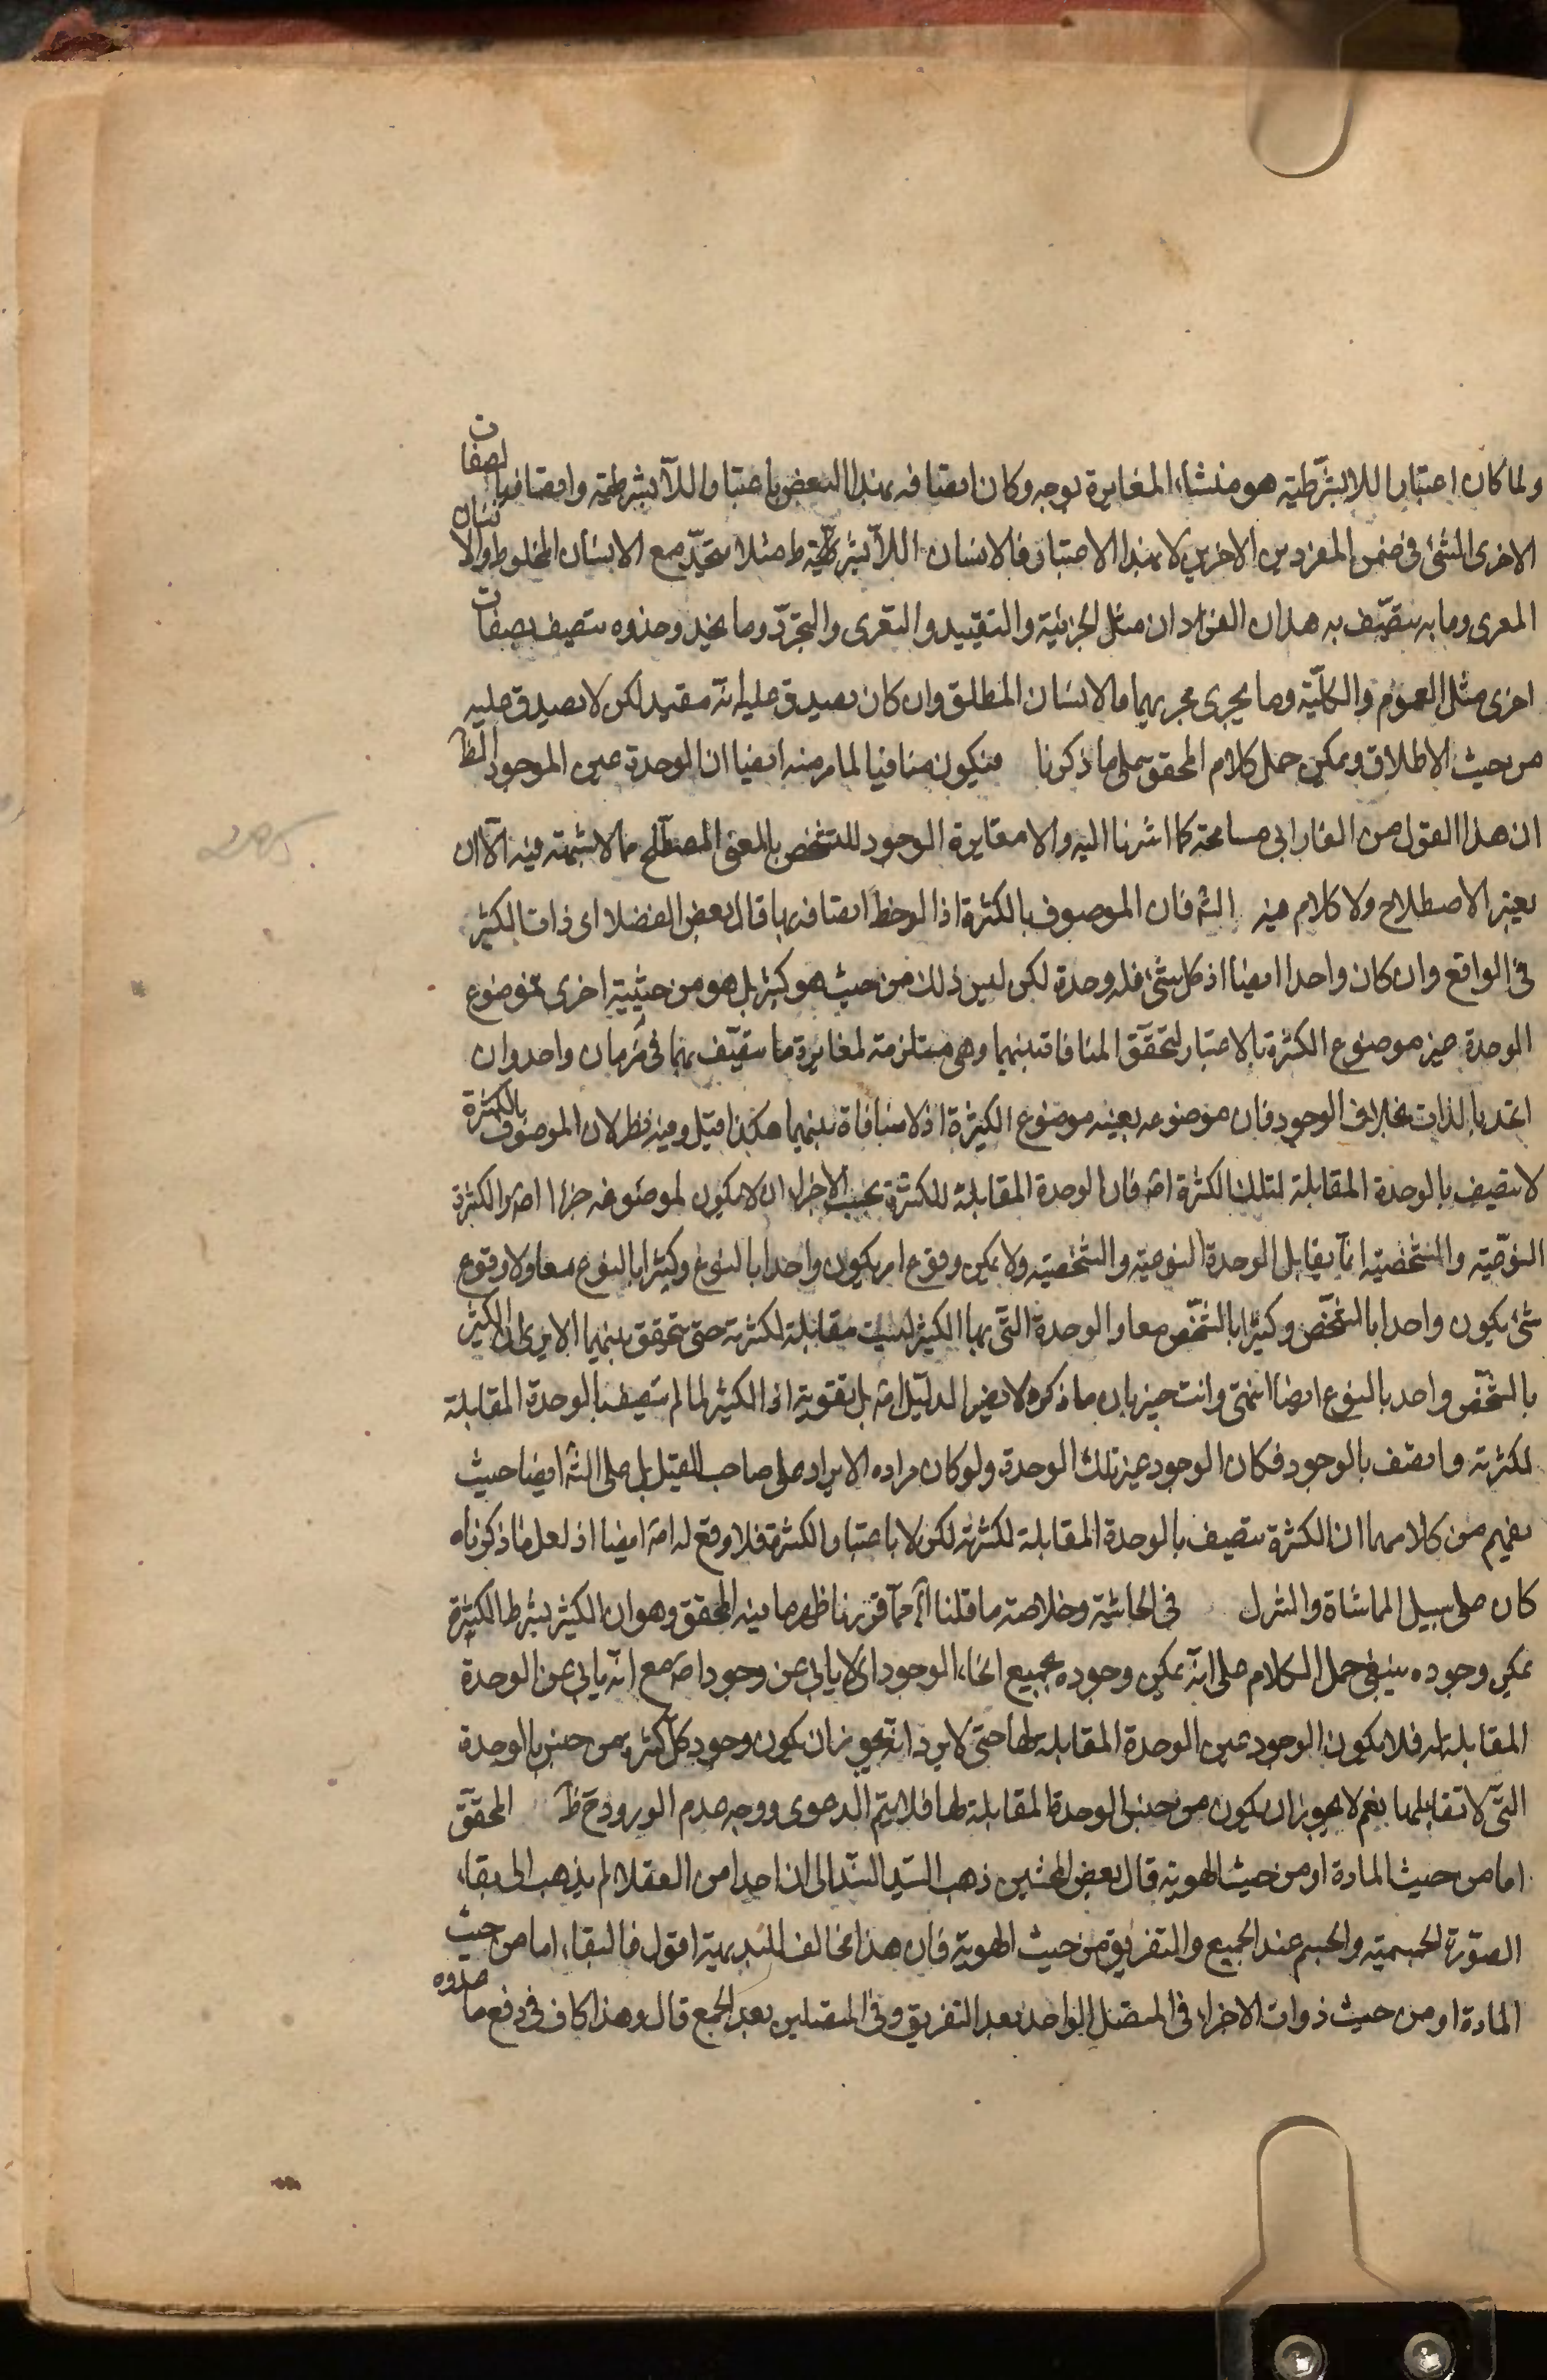 ولما كان اعتبار اللابشرطية هو منشاء المغايرة بوجه وكان اتصافه بهذا البعض باعتبار اللابشرطية واتصافه بالصفات
الاخرى الشئ في ضمن المفردين الاخرين لا بهذا الاعتبار فالانسان اللابشرطية مثلا متحد مع الانسان المخلوط والانسان
المعرى وما به يتصف به هذان الفردان مثل الجزئية والتقييد والتعرى والتجرد وما يحذو حذوه يتصف بصفات
اخرى مثل العموم والكلية وما يجرى مجريهما فالانسان المطلق وان كان يصدق عليه انه مقيد لكن لا يصدق عليه
من حيث الاطلاق ويمكن حمل كلام المحقق على ما ذكرنا فيكون منافيا لما مر منه ايضا ان الوحدة عين الموجود الظ
ان هذا القول من الفارابي مسامحة كما اشرنا اليه والا مغايرة الوجود للتشخص بالمعنى المصطلح مما لا شبهة فيه الا ان
يعتبر الاصطلاح ولا كلام فيه الش فان الموصوف بالكثرة اذا لوحظ اتصافه بها قال بعض الفضلا اى ذات الكثير
في الواقع وان كان واحدا ايضا اذ كل شئ فله وحدة لكن ليس ذلك من حيث هو كثير بل هو من حيثية اخرى فموضوع
الوحدة غير موضوع الكثرة بالاعتبار لتحقق المنافاة بينهما وهى مستلزمة لمغايرة ما يتصف بهما في زمان واحد وان
اتحد بالذات بخلاف الوجود فان موضوعه بعينه موضوع الكثرة اذ لا منافاة بينهما هكذا قيل وفيه نظر لان الموصوف بالكثرة
لا يتصف بالوحدة المقابلة لتلك الكثرة اصلا فان الوحدة المقابلة للكثرة بحسب الاجزاء ان لا يكون لموضوعه جزءا اصلا والكثرة
النوعية والشخصية انما يقابل الوحدة النوعية والشخصية ولا يمكن وقوع امر يكون واحدا بالنوع وكثيرا بالنوع معا ولا وقوع
شئ يكون واحدا بالشخص وكثيرا بالشخص معا والوحدة التى بها الكثير ليست مقابلة لكثرته حتى يتحقق بينهما الا يرى ان الكثير
بالشخص واحد بالنوع ايضا انتهى وانت خبير بان ما ذكره لا يضر الدليل اصلا بل يقويه اذ الكثير لما لم يتصف بالوحدة المقابلة
لكثرته واتصف بالوجود فكان الوجود غير تلك الوحدة ولو كان مراده الايراد على صاحب القيل بل على الش ايضا حيث
يفهم من كلامهما ان الكثرة يتصف بالوحدة المقابلة لكثرته لكن لا باعتبار الكثرة فلا وقع له اصلا ايضا اذ لعل ما ذكرناه
كان على سبيل المماشاة والتنزل في الحاشية وخلاصة ما قلنا الخ مما قررنا ظهر ما فيه المحقق وهو ان الكثير بشرط الكثرة
يمكن وجوده ينبغى حمل الكلام على انه يمكن وجوده بجميع انحاء الوجود اى لا يابى عن وجود اصلا مع انه يابى عن الوحدة
المقابلة له فلا يكون الوجود عين الوحدة المقابلة لها حتى لا يرد انه يجوز ان يكون وجود كل كثرة من جنس الوحدة
التى لا تقابلها نعم لا يجوز ان يكون من جنس الوحدة المقابلة لها فلا يتم الدعوى ووجه عدم الورود ح ظ المحقق
اما من حيث المادة او من حيث الهوية قال بعض المحشين ذهب السيد السند الى ان احدا من العقلا لم يذهب الى بقاء
الصورة الجسمية والجسم عند الجمع والتفريق من حيث الهوية فان هذا مخالف للبديهية اقول فالبقاء اما من حيث
المادة او من حيث ذوات الاجزاء في المتصل الواحد بعد التفريق وفي المتصلين بعد الجمع قال وهذا كاف في دفع ما عدوه
295